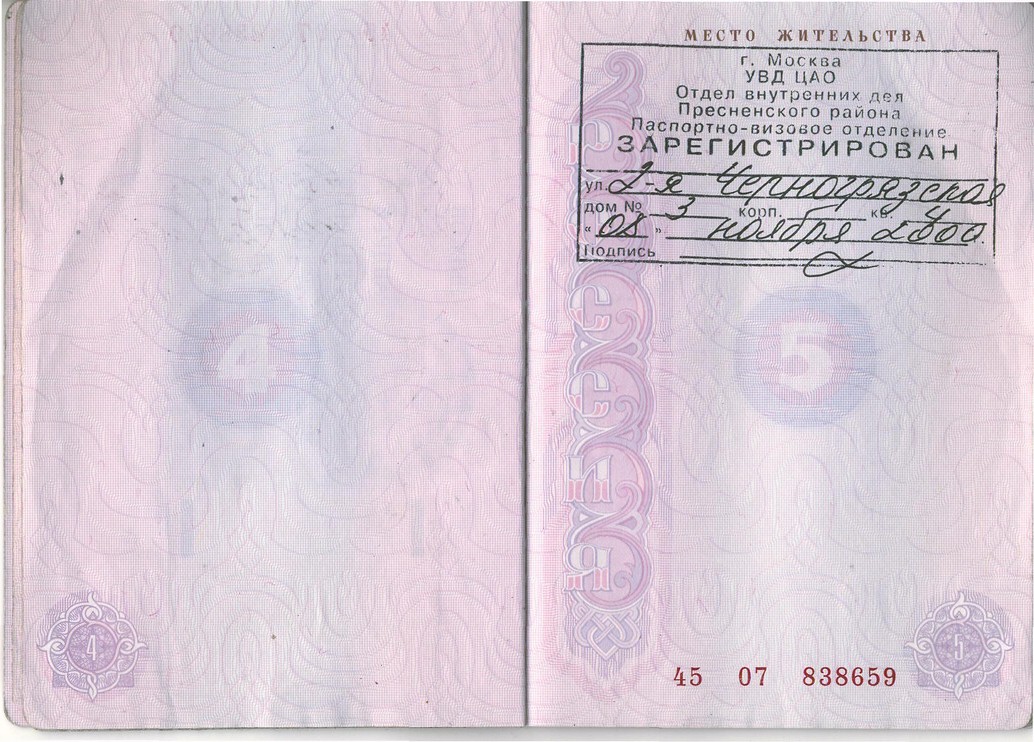 МЕСТО ЖИТЕЛЬСТВА
г. Москва
УВД ЦАО
Отдел внутренних дел
Пресненского района
Паспортно-визовое отделение
ЗАРЕГИСТРИРОВАН
ул. 2-я Черногрязская
дом № 3 корп. – кв. 4
« 08 » ноября 2000.
Подпись
РОССИЯ
4
5
4
5
45 07 838659